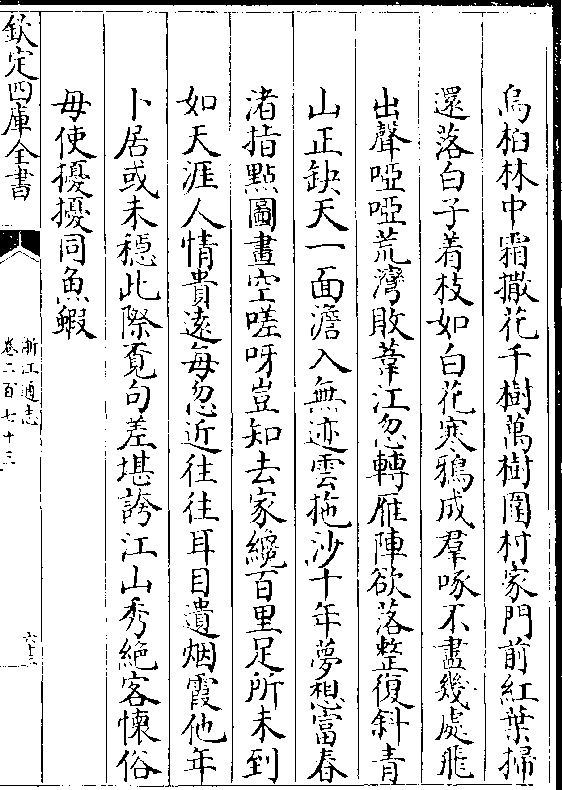 烏桕林中霜撒花千樹萬樹圍村家門前紅葉掃
還落白子着枝如白花寒鴉成羣啄不盡幾處飛
出聲啞啞荒灣敗葦江忽轉雁陣欲落整復斜青
山正缺天一面澹入無迹雲拖沙十年夢想富春
渚指點圖畫空嗟呀豈知去家纔百里足所未到
如天涯人情貴遠每忽近往往耳目遺烟霞他年
卜居或未穩此際覓句差堪誇江山秀絶客悚俗
毋使擾擾同魚鰕
欽定四庫全書
浙江通志
卷二百七十三
六十三